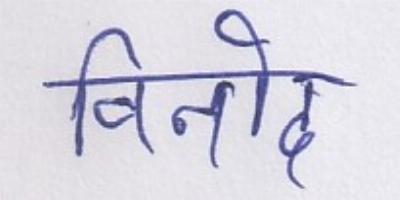 विनोद